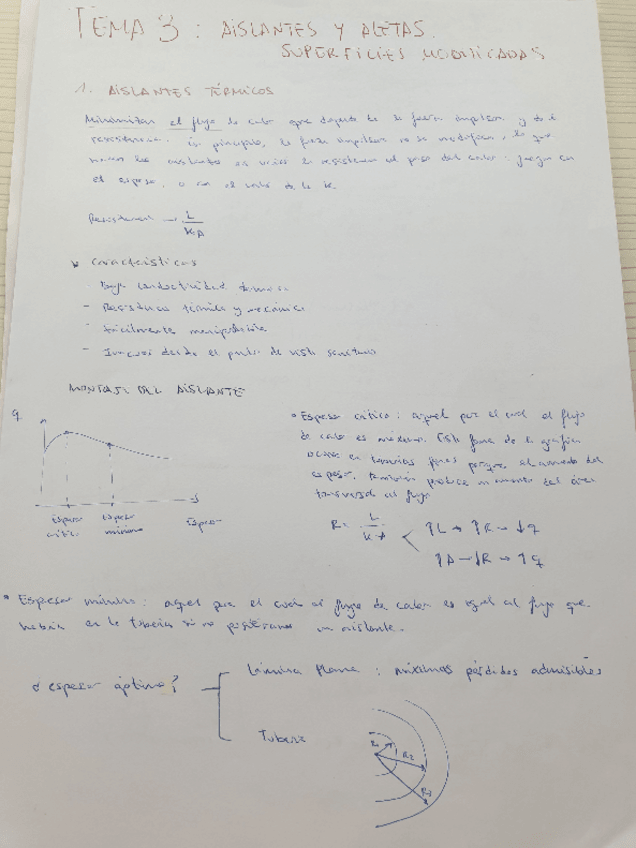 TEMA 3: AISLANTES Y ALETAS.
SUPERFICIES MODIFICADAS
1. AISLANTES TÉRMICOS
Minimizan el flujo de calor que depende de la fuerza impulsora y de la
resistencia. En principio, la fuerza impulsora no se modifica, lo que
hacen los aislantes es variar la resistencia al paso del calor: juegan con
el espesor, o con el valor de la k.
Resistencia → L / K A
Características
- Baja conductividad térmica
- Resistencia térmica y mecánica
- Fácilmente manipulable
- desde el punto de vista sanitario
MONTAJE DEL AISLANTE
q
Espesor crítico
Espesor mínimo
Espesor
• Espesor crítico: aquel por el cual el flujo
de calor es máximo. Esta forma de la gráfica
ocurre en tuberías porque el aumento del
espesor, también produce un aumento del área
transversal al flujo
R = L / K A
↑L → ↑R → ↓q
↑A → ↓R → ↑q
• Espesor mínimo: aquel por el cual el flujo de calor es igual al flujo que
habría en la tubería si no pusiéramos un aislante.
¿espesor óptimo?
Lámina plana: máximas pérdidas admisibles
Tubería
R1
R2
R3